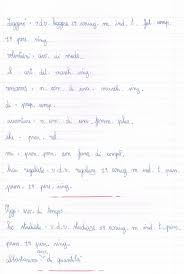 leggere: v.d.v. leggere 2ª coniug. m. ind. t. fut. semp.
1ª pers. sing.
volentieri: avv. di modo
il: art. det. masch. sing.
n. com. di cosa, masch. sing.
di: prep. semp.
avventure: n. com. di cosa femm. plur.
che: pron. rel.
mi: pron. pers. con funz. di compl.
hai regalato: v.d.v. regalare 1ª coniug. m. ind. t. pass.
pross. 2ª pers. sing.
Oggi: avv. di tempo
ho studiato: v.d.v. studiare 1ª coniug. m. ind. t. pass.
pross. 1ª pers. sing.
abbastanza: avv. di quantità